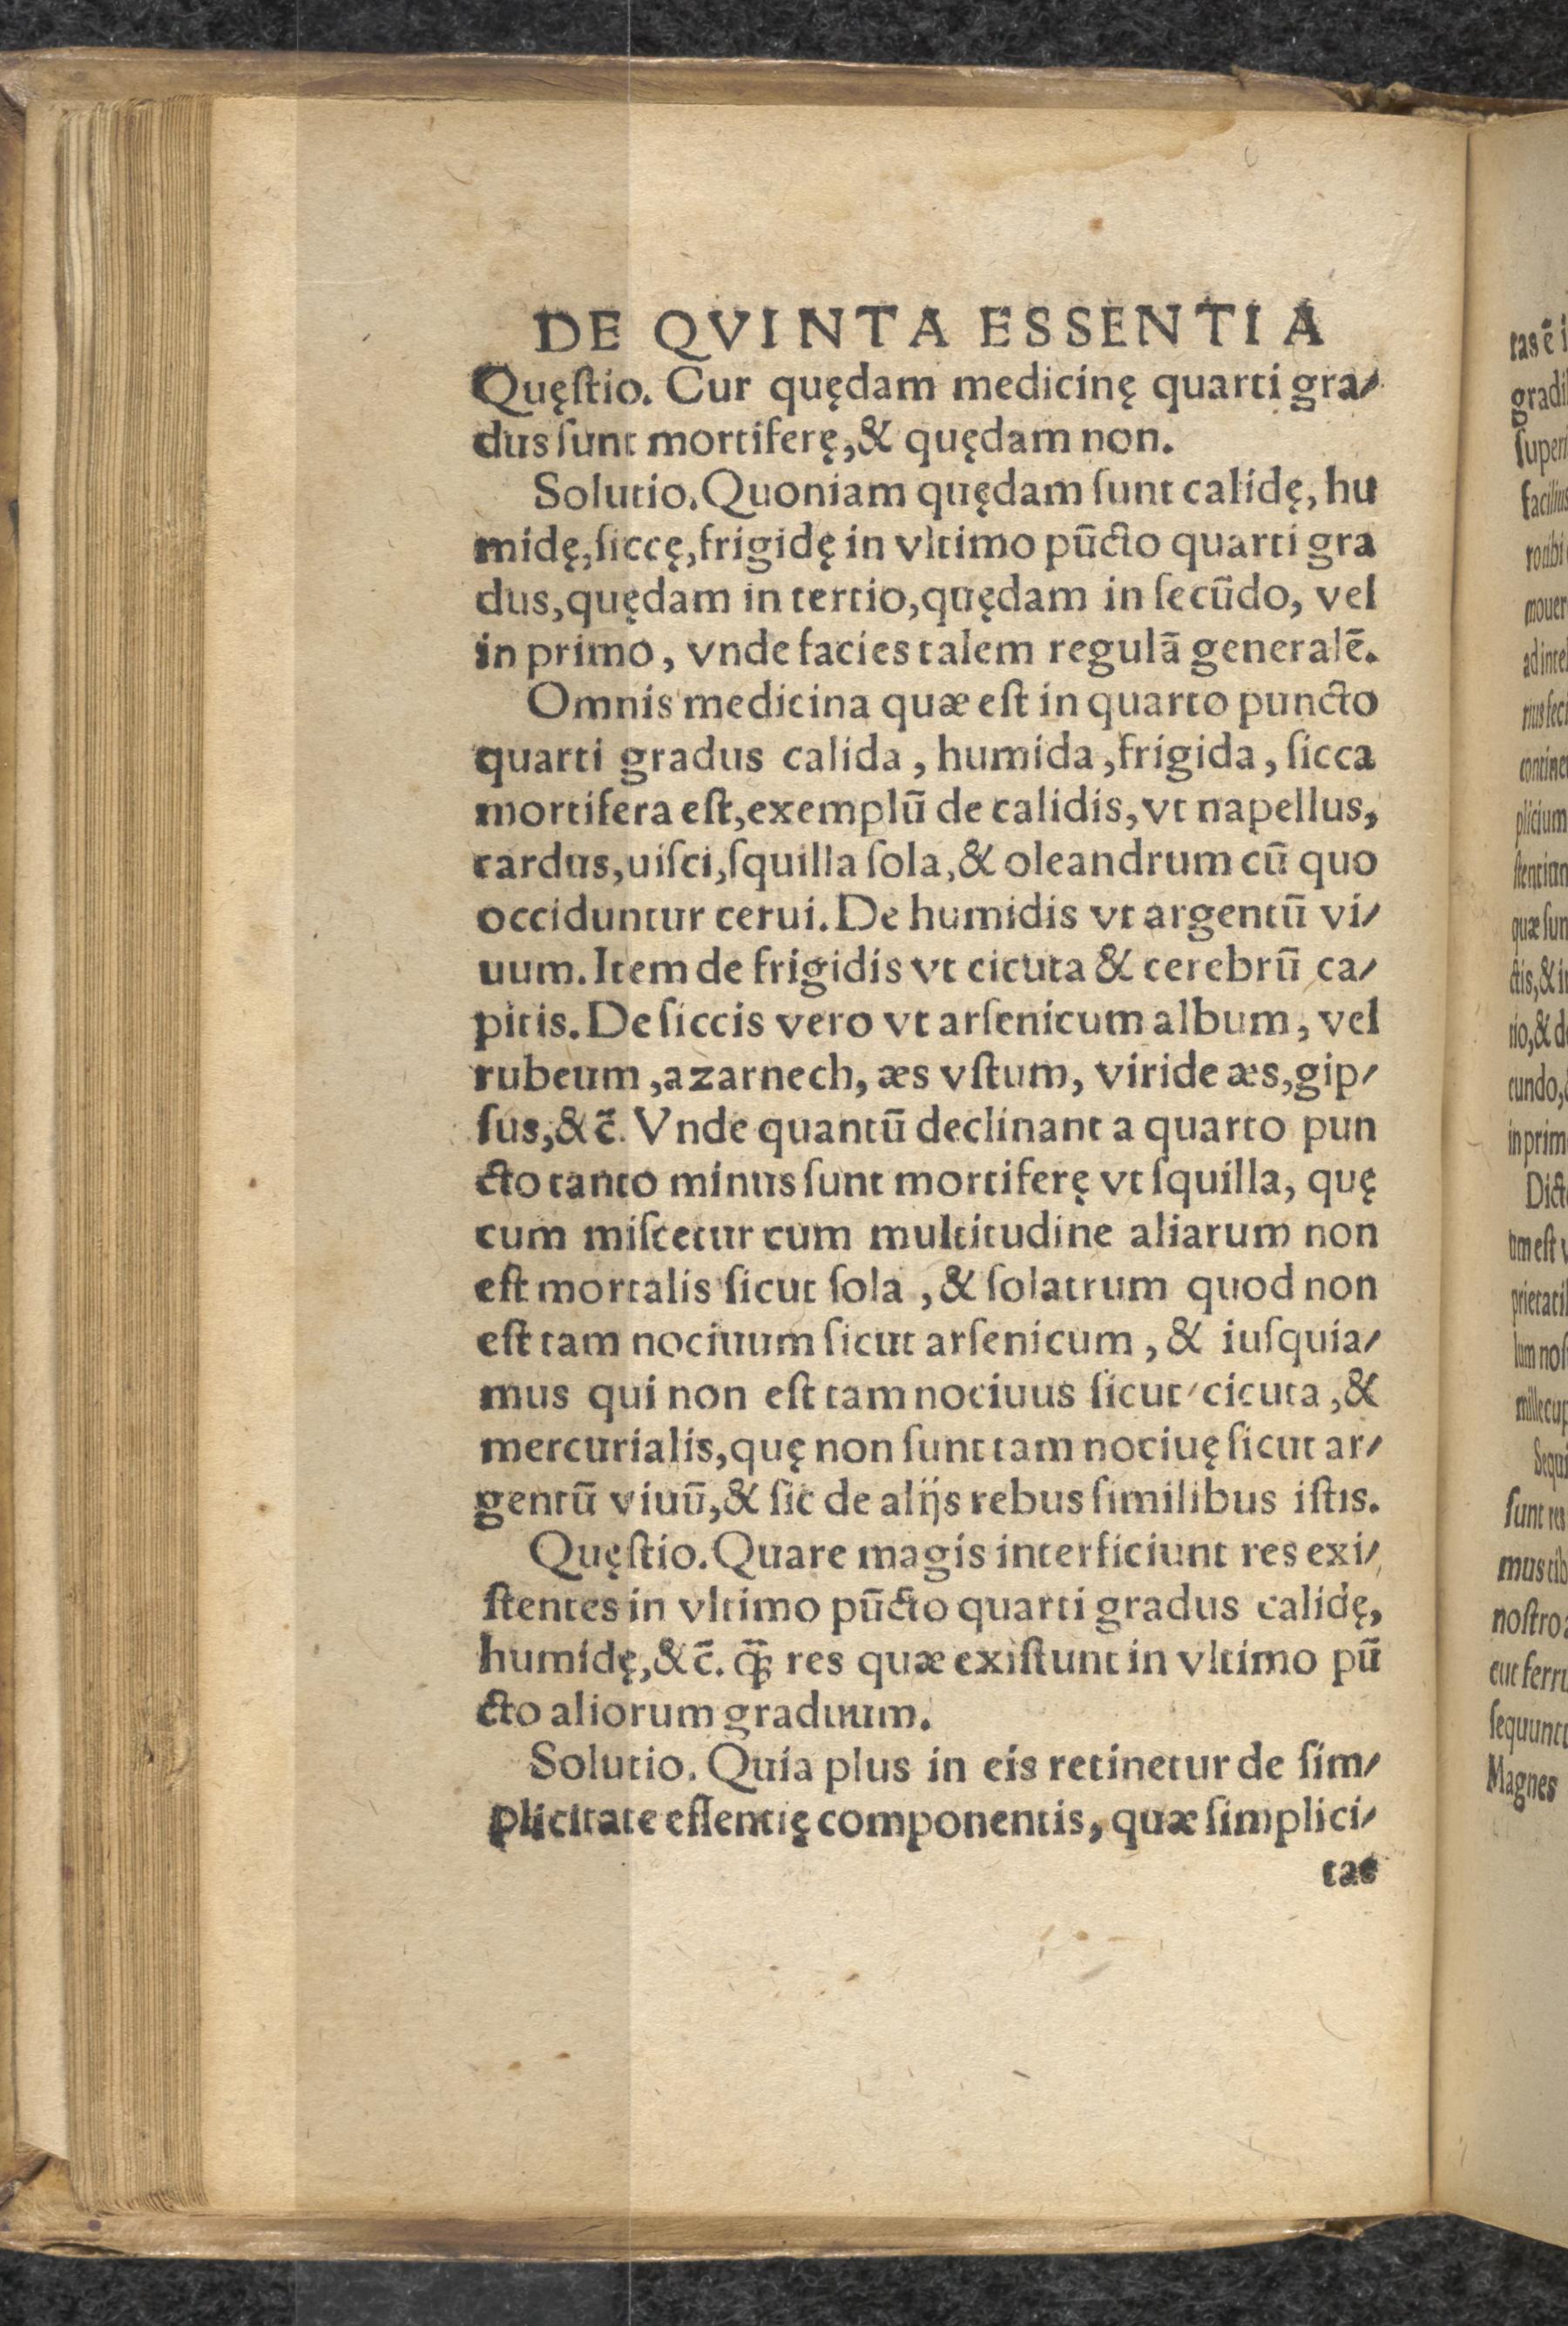 DE QVINTA ESSENTIA
Quęſtio. Cur quędam medicinę quarti gra/
dus ſunt mortiferę,& quędam non.
Solutio.Quoniam quędam ſunt calidę, hu
midę,ſiccę,frigidę in vltimo pūcto quarti gra
dus,quędam in tertio,quędam in ſecūdo, vel
in primo, vnde facies talem regulā generalē.
Omnis medicina quæ eſt in quarto puncto
quarti gradus calida, humida,frigida, ſicca
mortifera eſt,exemplū de calidis,vt napellus,
cardus,uiſci,ſquilla ſola,& oleandrum cū quo
occiduntur cerui. De humidis vt argentū vi/
uum. Item de frigidis vt cicuta & cerebrū ca/
pitis. De ſiccis vero vt arſenicum album, vel
rubeum,azarnech, æs vſtum, viride æs,gip/
ſus,&c̄. Vnde quantū declinant a quarto pun
cto tanto minus ſunt mortiferę vt ſquilla, quę
cum miſcetur cum multitudine aliarum non
eſt mortalis ſicut ſola,& ſolatrum quod non
eſt tam nociuum ſicut arſenicum,& iuſquia/
mus qui non eſt tam nociuus ſicut cicuta,&
mercurialis,quę non ſunt tam nociuę ſicut ar/
gentū viuū,& ſic de alijs rebus ſimilibus iſtis.
Quęſtio.Quare magis interficiunt res exi/
ſtentes in vltimo pūcto quarti gradus calidę,
humidę,&c̄. res quæ exiſtunt in vltimo pū
cto aliorum graduum.
Solutio. Quia plus in eis retinetur de ſim/
plicitate eſſentię componentis, quæ ſimplici/
tas ē
gradi
ſuper
facilius
mouer
ad inte
plicium
quæ ſun
rio,& d
cundo,
in prim
Dict
tum eſt v
prietati
lum noſ
Sequi
ſunt res
mus tib
noſtro
cut ferr
ſequunt
Magnes